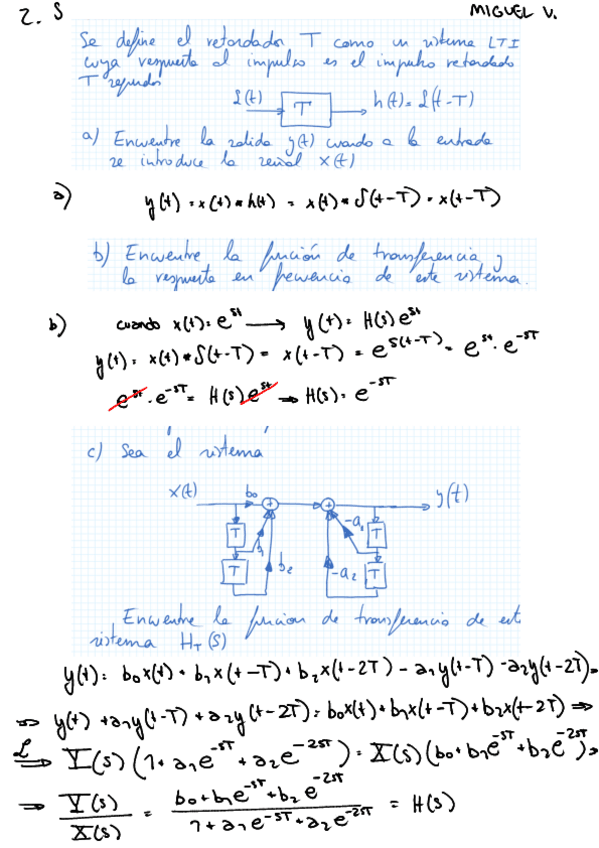 2. S MIGUEL V.
Se define el retardador T como un sistema LTI
cuya respuesta al impulso es el impulso retardado
T segundos
δ(t) T h(t)=δ(t-T)
a) Encuentre la salida y(t) cuando a la entrada
se introduce la señal x(t)
a) y(t) = x(t) * h(t) = x(t) * δ(t-T) = x(t-T)
b) Encuentre la función de transferencia y
la respuesta en frecuencia de este sistema.
b) cuando x(t) = e^{st} → y(t) = H(s) e^{st}
y(t) = x(t) * δ(t-T) = x(t-T) = e^{s(t-T)} = e^{st} · e^{-sT}
e^{st} · e^{-sT} = H(s) e^{st} → H(s) = e^{-sT}
c) Sea el sistema
x(t) b₀ y(t)
T b₁ -a₁ T
T b₂ -a₂ T
Encuentre la función de transferencia de este
sistema H_T(s)
y(t) = b₀x(t) + b₁x(t-T) + b₂x(t-2T) - a₁y(t-T) - a₂y(t-2T) ⇒
⇒ y(t) + a₁y(t-T) + a₂y(t-2T) = b₀x(t) + b₁x(t-T) + b₂x(t-2T) ⇒
ℒ⇒ Y(s) (1 + a₁e^{-sT} + a₂e^{-2sT}) = X(s) (b₀ + b₁e^{-sT} + b₂e^{-2sT}) ⇒
⇒ Y(s)/X(s) = (b₀ + b₁e^{-sT} + b₂e^{-2sT})/(1 + a₁e^{-sT} + a₂e^{-2sT}) = H(s)